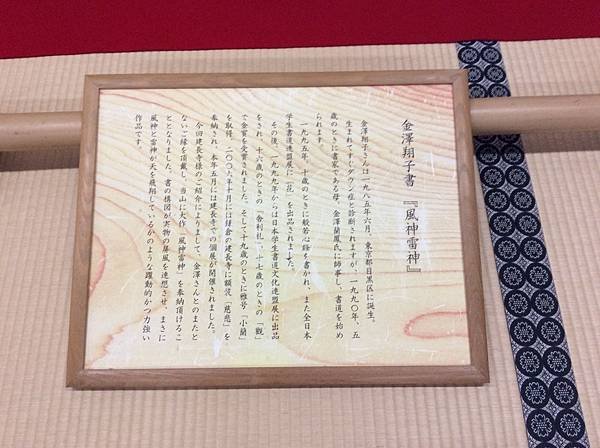 金澤翔子書『風神雷神』
金澤翔子さんは一九八五年六月、東京都目黒区に誕生。
生まれてすぐダウン症と診断されますが、一九九〇年、五
歳のときに書家である母、金澤蘭鳳氏に師事し、書道を始め
られます。
一九九五年、十歳のときに般若心経を書かれ、また全日本
学生書道連盟展に「花」を出品されました。
その後、一九九九年からは日本学生書道文化連盟展に出品
をされ、十六歳のときの「舎利礼」、十七歳のときの「觀」
で金賞を受賞されました。そして十九歳のときに雅号「小蘭」
を取得。二〇〇六年十月には鎌倉の建長寺に額装「慈悲」を
奉納され、本年五月には建長寺での個展が開催されました。
今回建長寺様のご紹介によりまして、金澤さんとのまたと
ないご縁を頂戴し、当山に大作「風神雷神」を奉納頂けるこ
ととなりました。書の構図が実物の屏風を連想させ、まさに
風神と雷神が天を飛翔しているかのような躍動的かつ力強い
作品です。